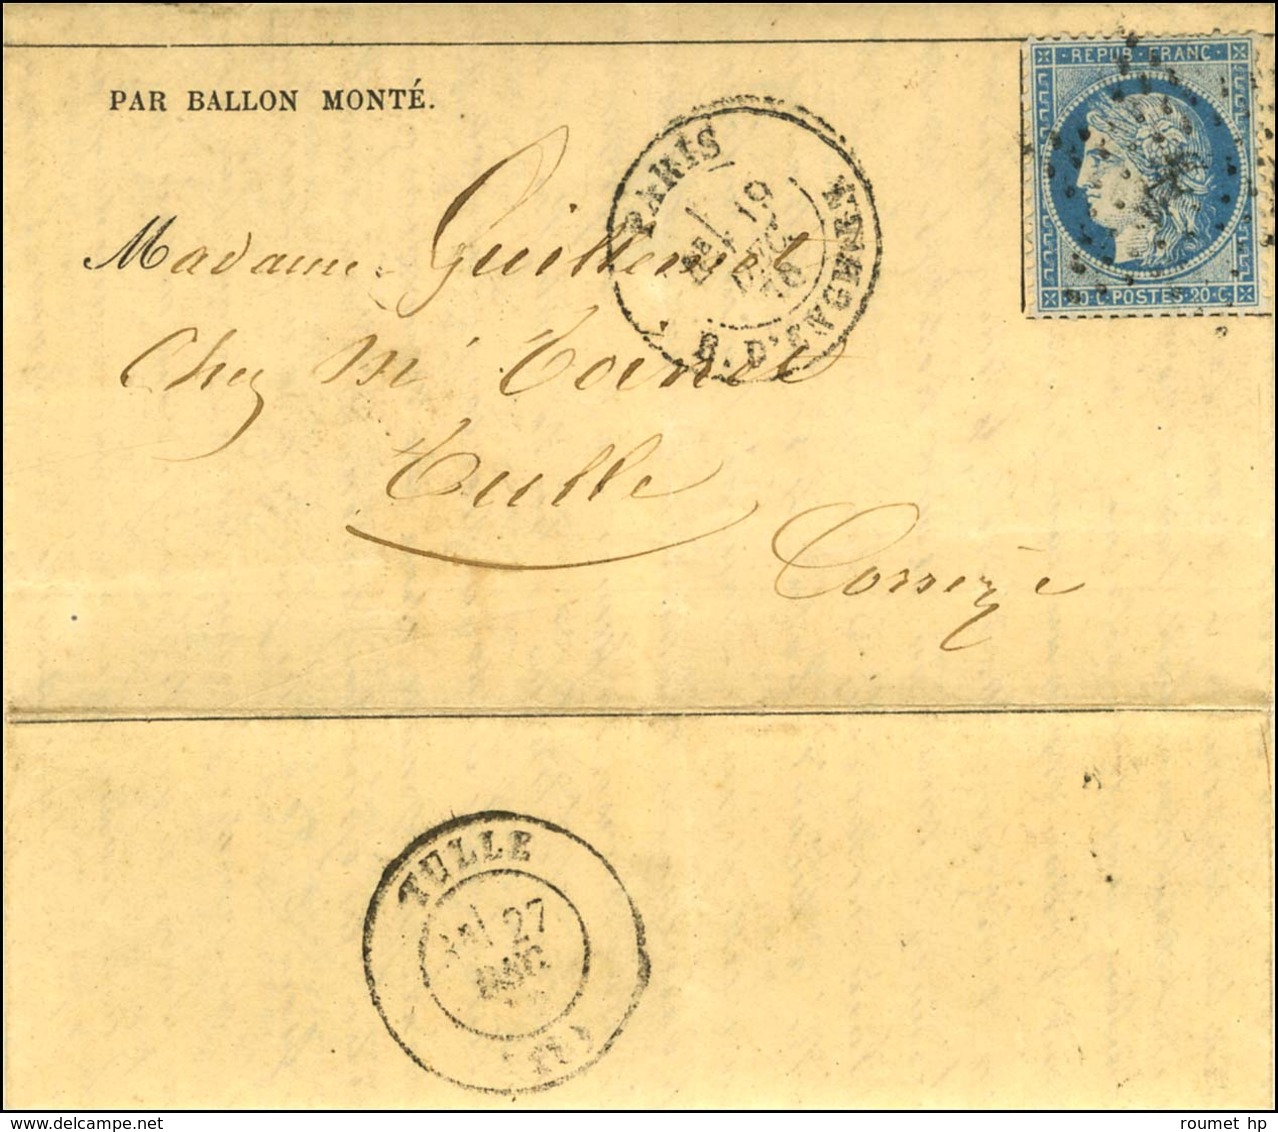 REPUB. FRANC.
PAR BALLON MONTÉ.
PARIS
19
DEC.
R. D'ENGHIEN
20 C. POSTES 20 C.
Madame Guillemet
Chez Mr
Tulle
Corrèze
TULLE
27
DEC.
roumet hp
www.delcampe.net